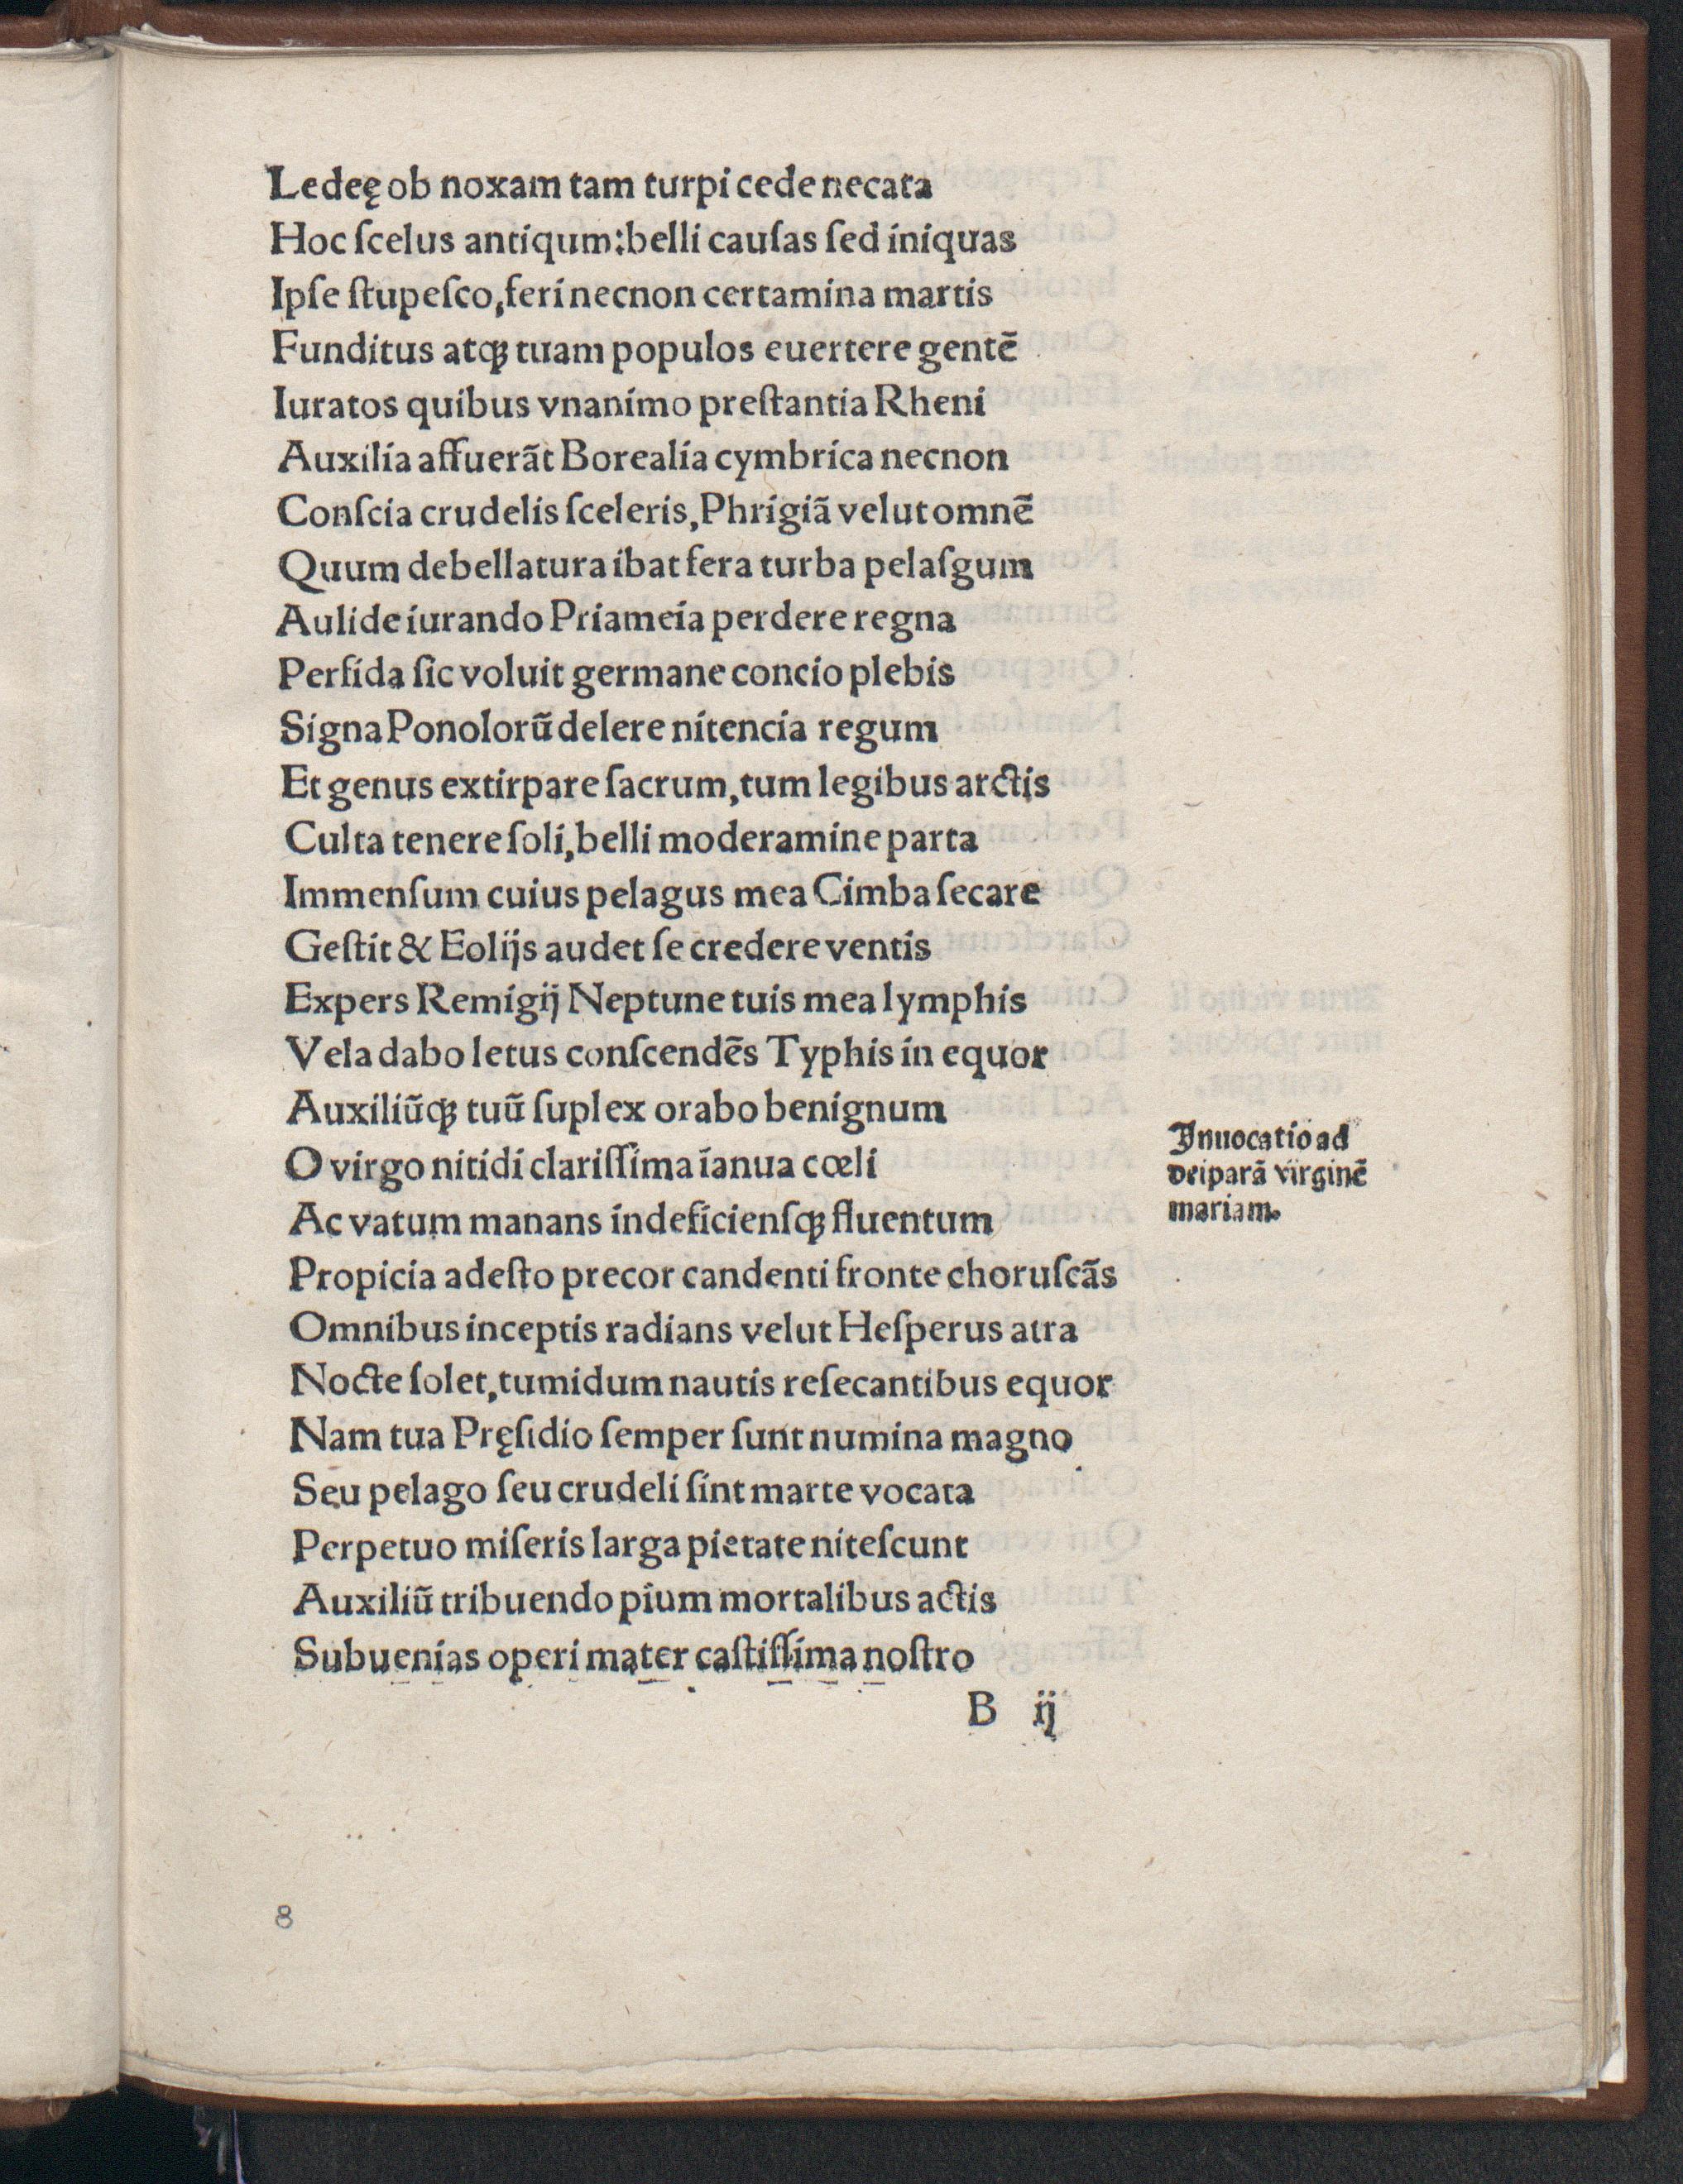 Ledeę ob noxam tam turpi cede necata
Hoc ſcelus antiqum:belli cauſas ſed iniquas
Ipſe ſtupeſco,feri necnon certamina martis
Funditus atqꝫ tuam populos euertere gentẽ
Iuratos quibus vnanimo preſtantia Rheni
Auxilia affuerãt Borealia cymbrica necnon
Conſcia crudelis ſceleris,Phrigiã velut omnẽ
Quum debellatura ibat fera turba pelaſgum
Aulide iurando Priameia perdere regna
Perfida ſic voluit germane concio plebis
Signa Ponolorũ delere nitencia regum
Et genus extirpare ſacrum,tum legibus arctis
Culta tenere ſoli,belli moderamine parta
Immenſum cuius pelagus mea Cimba ſecare
Geſtit & Eolijs audet ſe credere ventis
Expers Remigij Neptune tuis mea lymphis
Vela dabo letus conſcendẽs Typhis in equor
Auxiliũqꝫ tuũ ſuplex orabo benignum
O virgo nitidi clariſſima ianua cœli
Ac vatum manans indeficienſqꝫ fluentum
Propicia adeſto precor candenti fronte choruſcãs
Omnibus inceptis radians velut Heſperus atra
Nocte ſolet,tumidum nautis reſecantibus equor
Nam tua Pręſidio ſemper ſunt numina magno
Seu pelago ſeu crudeli ſint marte vocata
Perpetuo miſeris larga pietate niteſcunt
Auxiliũ tribuendo pium mortalibus actis
Subuenias operi mater caſtiſſima noſtro
B ij
Inuocatio ad
deiparã virginẽ
mariam.
8